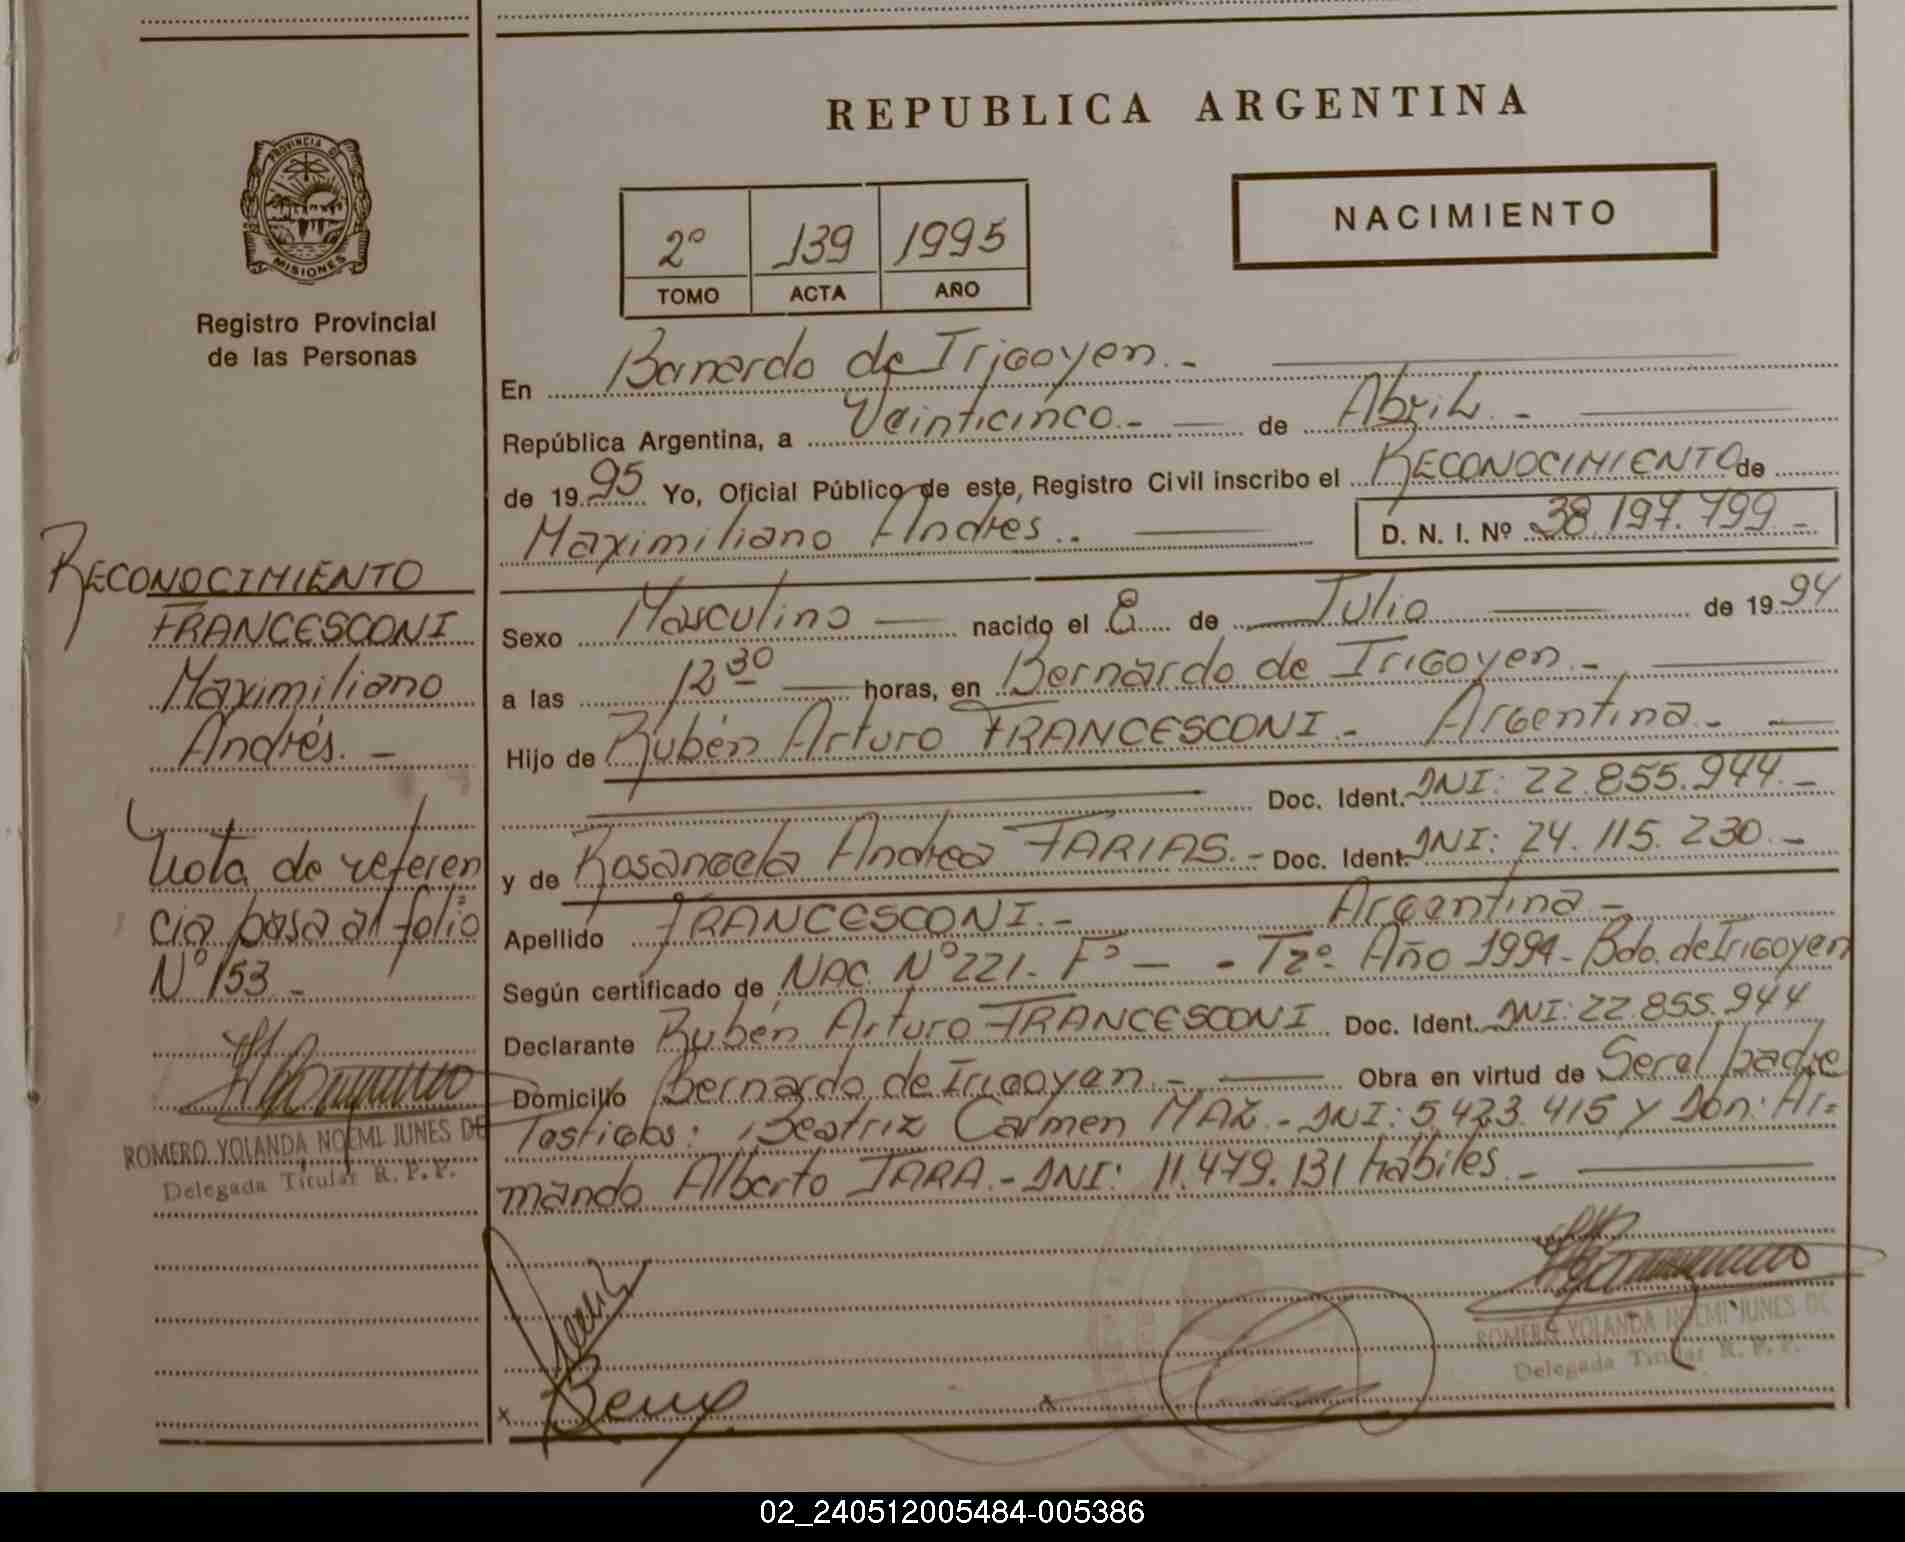 REPUBLICA ARGENTINA
NACIMIENTO
2º 139 1995
TOMO ACTA AÑO
PROVINCIA DE
MISIONES
Registro Provincial
de las Personas
RECONOCIMIENTO
FRANCESCONI
Maximiliano
Andrés. -
Nota de referen
cia pasa al folio
Nº 153 -
ROMERO YOLANDA NOEMI JUNES DE
Delegada Titular R. P. P.
En Bernardo de Irigoyen. -
República Argentina, a Veinticinco. - de Abril. -
de 1995 Yo, Oficial Público de este, Registro Civil inscribo el RECONOCIMIENTO de
Maximiliano Andrés.. D. N. I. Nº 38.197.799 -
Sexo Masculino nacido el 8 de Julio de 1994
a las 12 30 horas, en Bernardo de Irigoyen. -
Hijo de Rubén Arturo FRANCESCONI. - Argentina. -
Doc. Ident. DNI: 22.855.944. -
y de Rosangela Andrea FARIAS. - Doc. Ident. DNI: 24.115.230. -
Apellido FRANCESCONI. - Argentina -
Según certificado de NAC. Nº 221. Fº - - T2º. Año 1994 - Bdo. de Irigoyen
Declarante Rubén Arturo FRANCESCONI Doc. Ident. DNI: 22.855.944
Domicilio Bernardo de Irigoyen. - Obra en virtud de Ser el padre
Testigos: Beatriz Carmen MAZ. - DNI: 5.423.415 y Don: Ar=
mando Alberto JARA. - DNI: 11.479.131 hábiles. -
ROMERO YOLANDA NOEMI JUNES DE
Delegada Titular R. P. P.
02_240512005484-005386